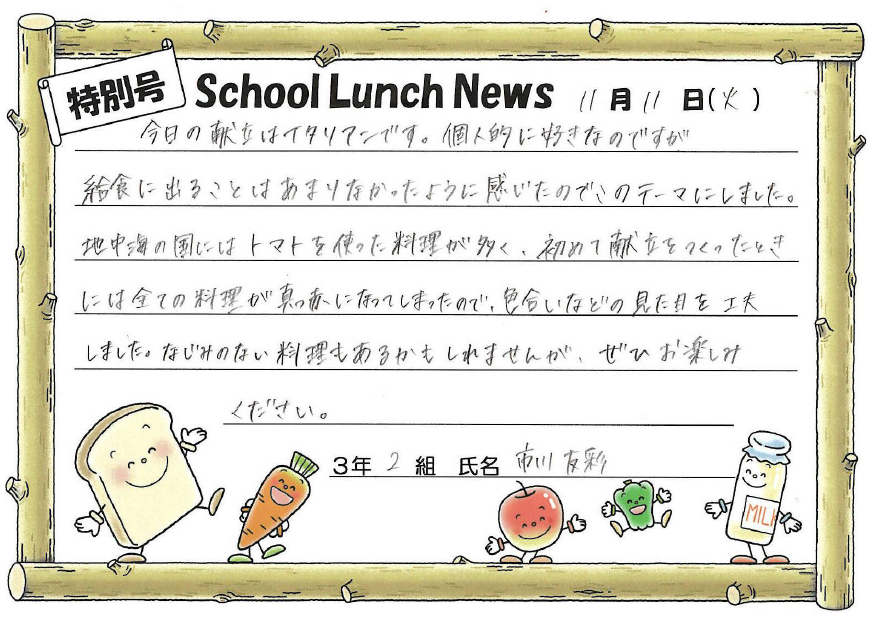 特別号 School Lunch News 11月11日(火)
今日の献立はイタリアンです。個人的に好きなのですが
給食に出ることはあまりなかったように感じたのでこのテーマにしました。
地中海の国にはトマトを使った料理が多く、初めて献立をつくったとき
には全ての料理が真っ赤になってしまったので、色合いなどの見た目を工夫
しました。なじみのない料理もあるかもしれませんが、ぜひお楽しみ
ください。
3年 2 組 氏名 市川 友彩
MILK